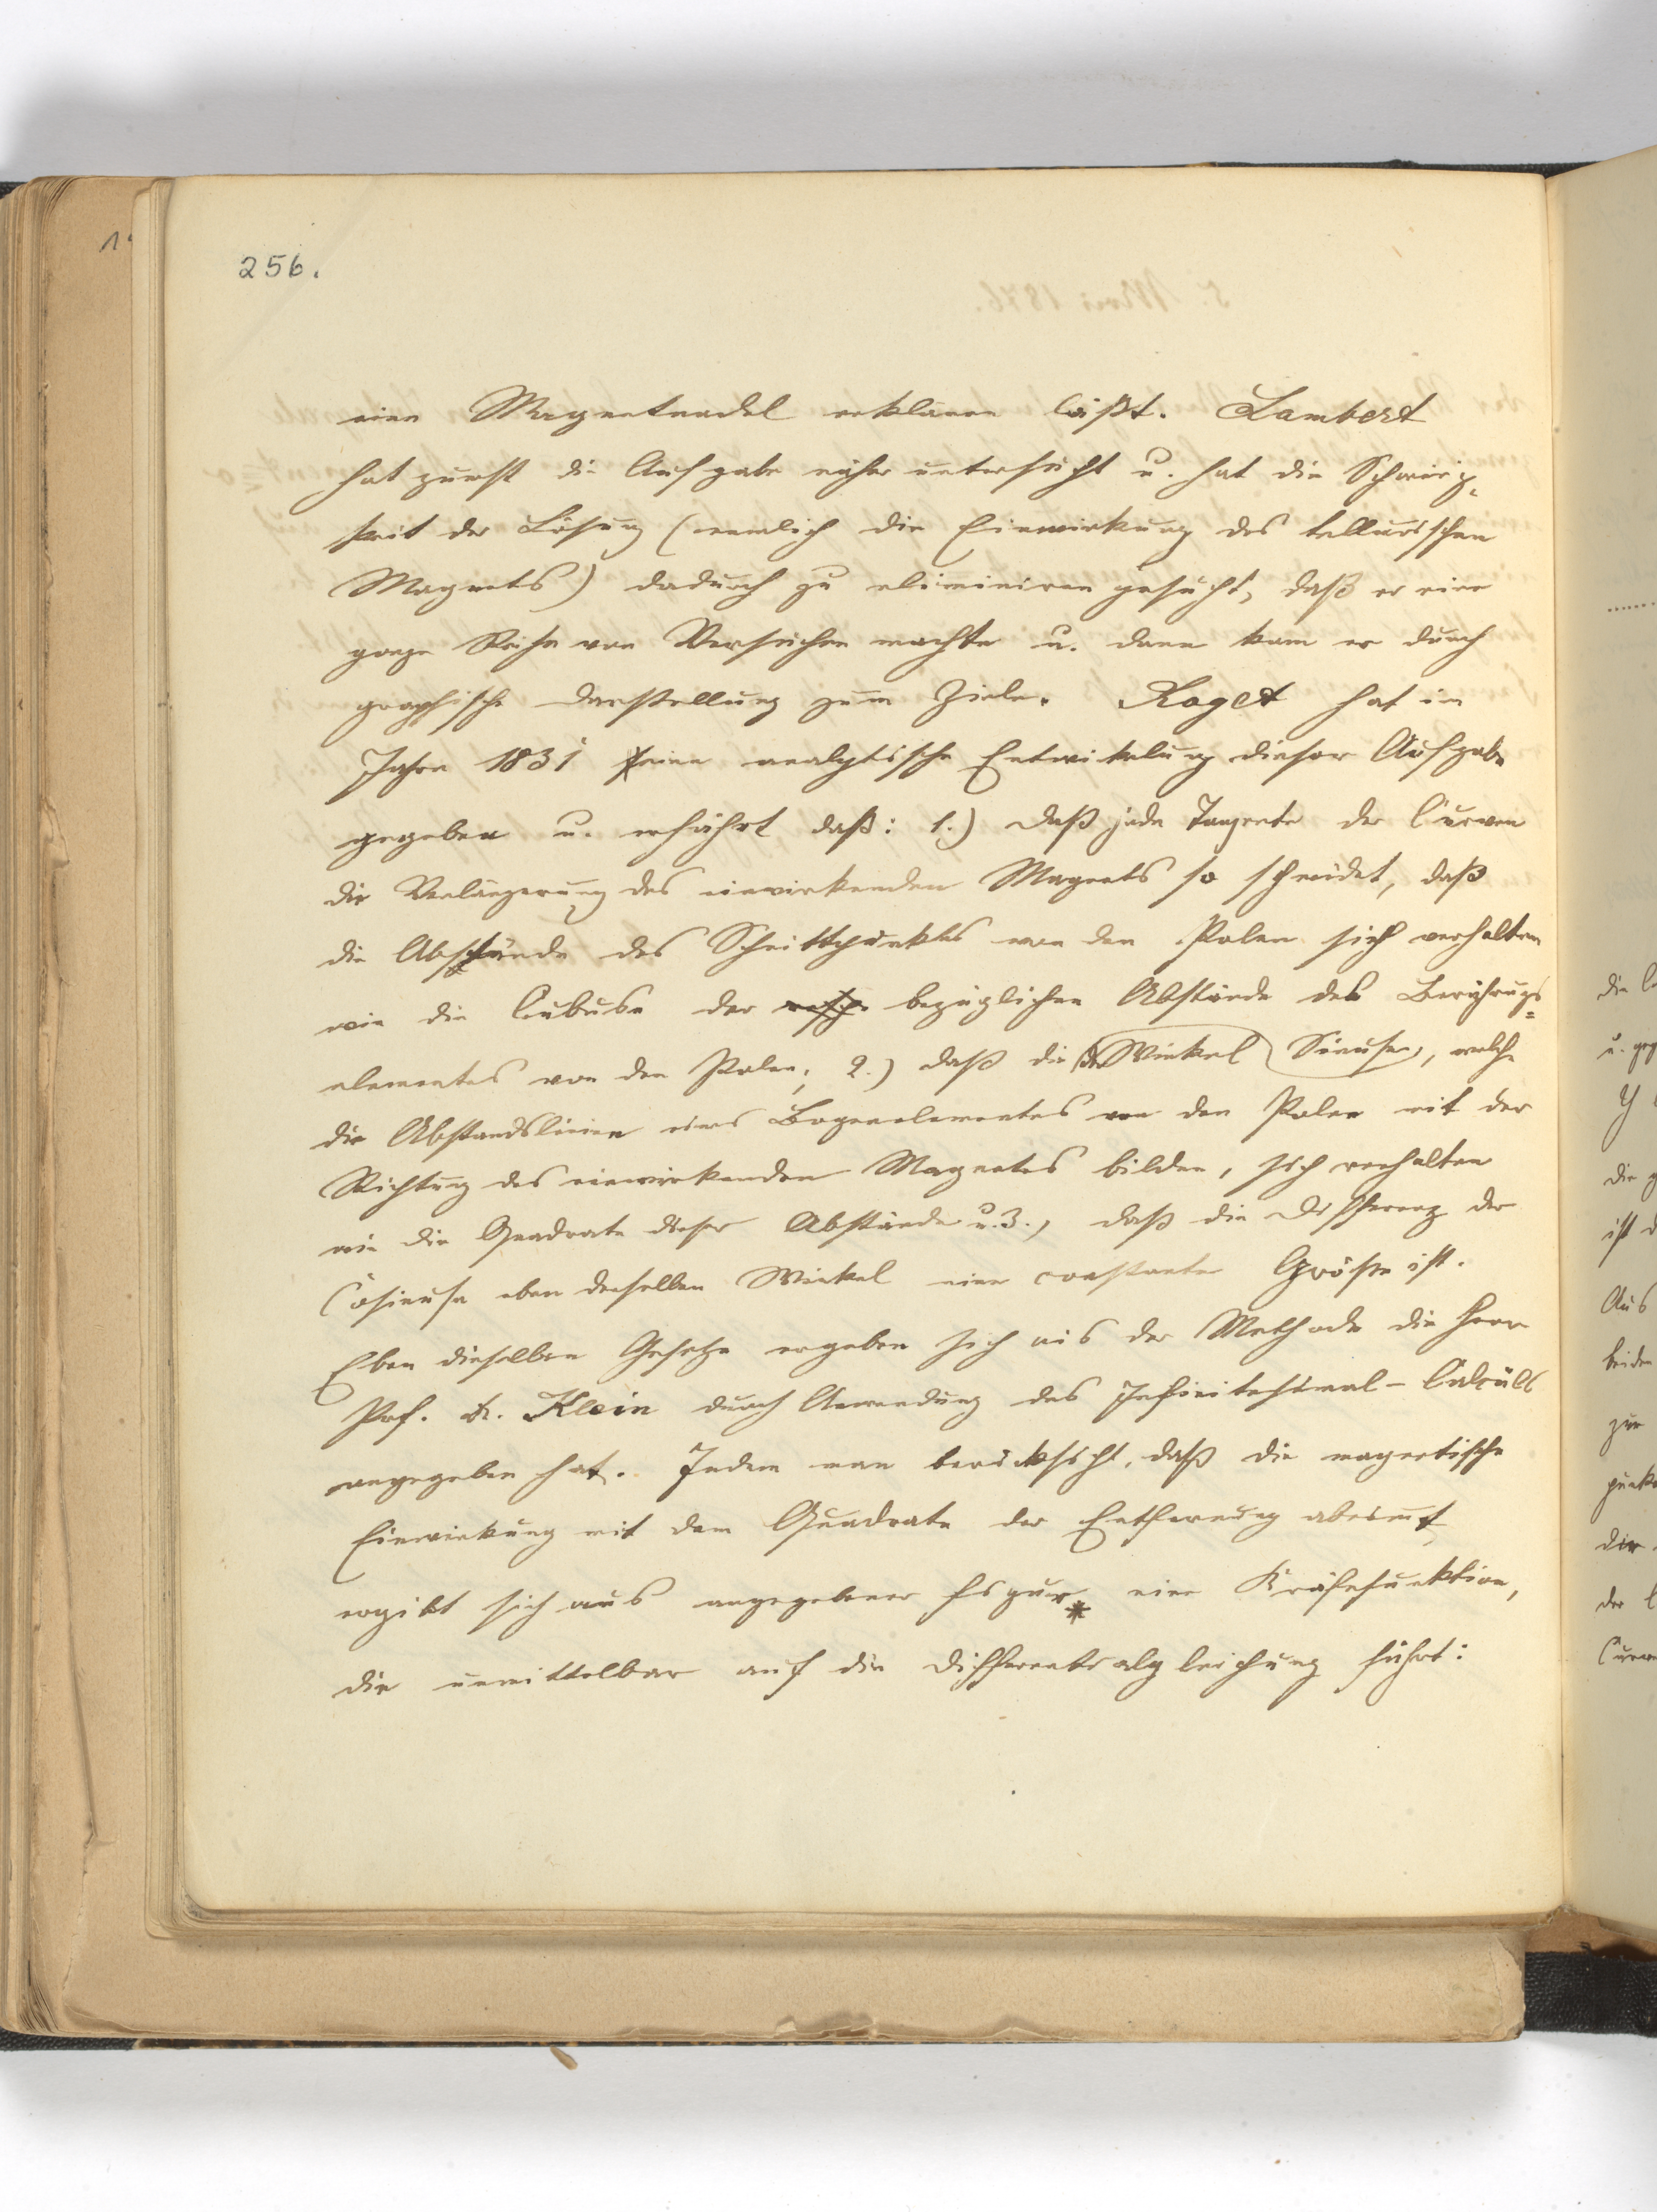 256.
eine Magnetnadel erklären läßt. Lambert
hat zuerst die Aufgabe näher untersucht u. hat die Schwierig=
keit der Lösung (nemlich die Einwirkung des tellurischen
Magnets) dadurch zu eliminiren gesucht, daß er eine
ganze Reihe von Versuchen machte u. dann kam er durch
graphische Darstellung zum Ziele. Roget hat im
Jahre 1831 eine analytische Entwickelung dieser Aufgabe
gegeben u. erfährt daß: 1.) daß jede Tangente der Curven
die Verlängerung des einwirkenden Magnets so schneidet, daß
die Abstände des Schnittpunktes von den Polen sich verhalten
wie die Cubuse der bezüglichen Abstände des Berührugs=
elementes von den Polen; 2.) daß die der Winkel Sinuse, welche
die Abstandslinien eines Bogenelementes von den Polen mit der
Richtung des einwirkenden Magnetes bilden, sich verhalten
wie die Quadrate dieser Abstände u. 3., daß die Differenz der
Cosinuse eben derselben Winkel eine constante Größe ist.
Eben dieselben Gesetze ergeben sich aus der Methode die Herr
Prof. Dr. Klein durch Anwendung des Infinitesimal-Calcüls
angegeben hat. Indem man berücksicht, daß die magnetische
Einwirkung mit dem Quadrate der Entfernung abnimmt,
ergibt sich aus angegebener Figur* eine Kräftefunktion,
die unmittelbar auf die Differentialgleichung führt: